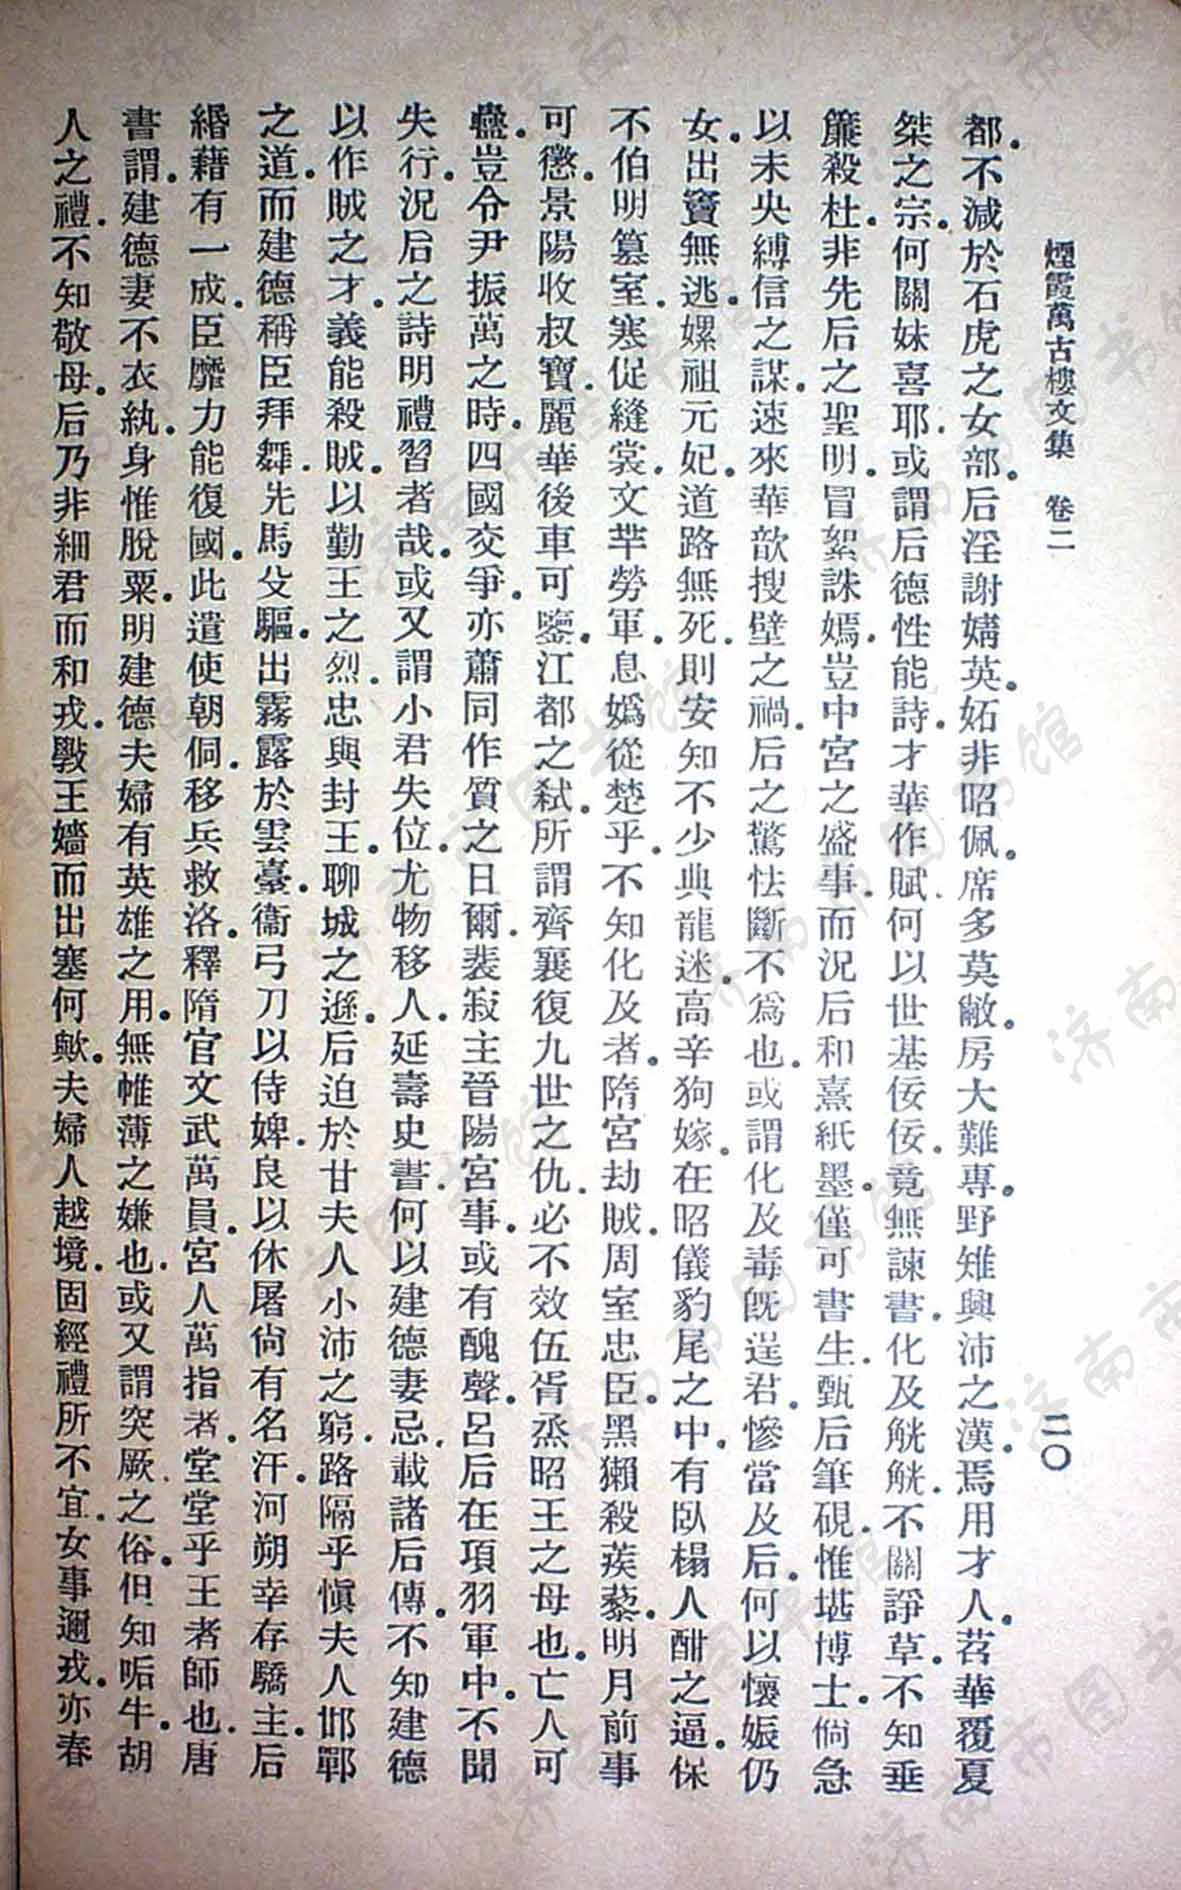 煙霞萬古樓文集　卷二　二〇
都。不減於石虎之女部。后淫謝媾英。妬非昭佩。席多莫敝。房大難專。野雉興沛之漢。焉用才人。苕華覆夏
桀之宗。何關妹喜耶。或謂后德性能詩。才華作賦。何以世基佞佞。竟無諫書。化及觥觥。不關諍草。不知垂
簾殺杜。非先后之聖明。冒絮誅嫣。豈中宮之盛事。而況后和熹紙墨。僅可書生。甄后筆硯。惟堪博士。倘急
以未央縛信之謀。速來華歆搜壁之禍。后之驚怯斷不爲也。或謂化及毒既逞君。慘當及后。何以懷娠仍
女。出竇無逃。嫘祖元妃。道路無死。則安知不少典龍迷。高辛狗嫁。在昭儀豹尾之中。有臥榻人酣之逼。保
不伯明篡室。寒促縫裳。文芈勞軍。息嬀從楚乎。不知化及者。隋宮劫賊。周室忠臣。黑獺殺蒺藜。明月前事
可懲。景陽收叔寶。麗華後車可鑒。江都之弒。所謂齊襄復九世之仇。必不效伍胥烝昭王之母也。亡人可
蠱。豈令尹振萬之時。四國交爭。亦蕭同作質之日。爾裴寂主晉陽宮事。或有醜聲。呂后在項羽軍中。不聞
失行。況后之詩明禮習者哉。或又謂小君失位。尤物移人。延壽史書。何以建德妻忌。載諸后傳。不知建德
以作賊之才。義能殺賊。以勤王之烈。忠與封王。聊城之遜。后迫於甘夫人小沛之窮。路隔乎愼夫人邯鄲
之道。而建德稱臣拜舞。先馬殳驅。出霧露於雲臺。衞弓刀以侍婢。良以休屠尙有名汗。河朔幸存驕主。后
緡藉有一成。臣靡力能復國。此遣使朝侗。移兵救洛。釋隋官文武萬員。宮人萬指者。堂堂乎王者師也。唐
書謂。建德妻不衣紈。身惟脫粟。明建德夫婦有英雄之用。無帷薄之嫌也。或又謂突厥之俗。但知㖃牛。胡
人之禮。不知敬母。后乃非細君而和戎。斅王嬙而出塞何歟。夫婦人越境。固經禮所不宜。女事邇戎。亦春